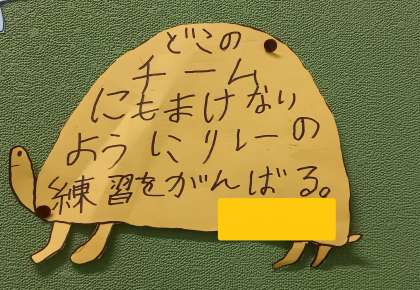 どこの
チーム
にもまけない
ようにリレーの
練習をがんばる。